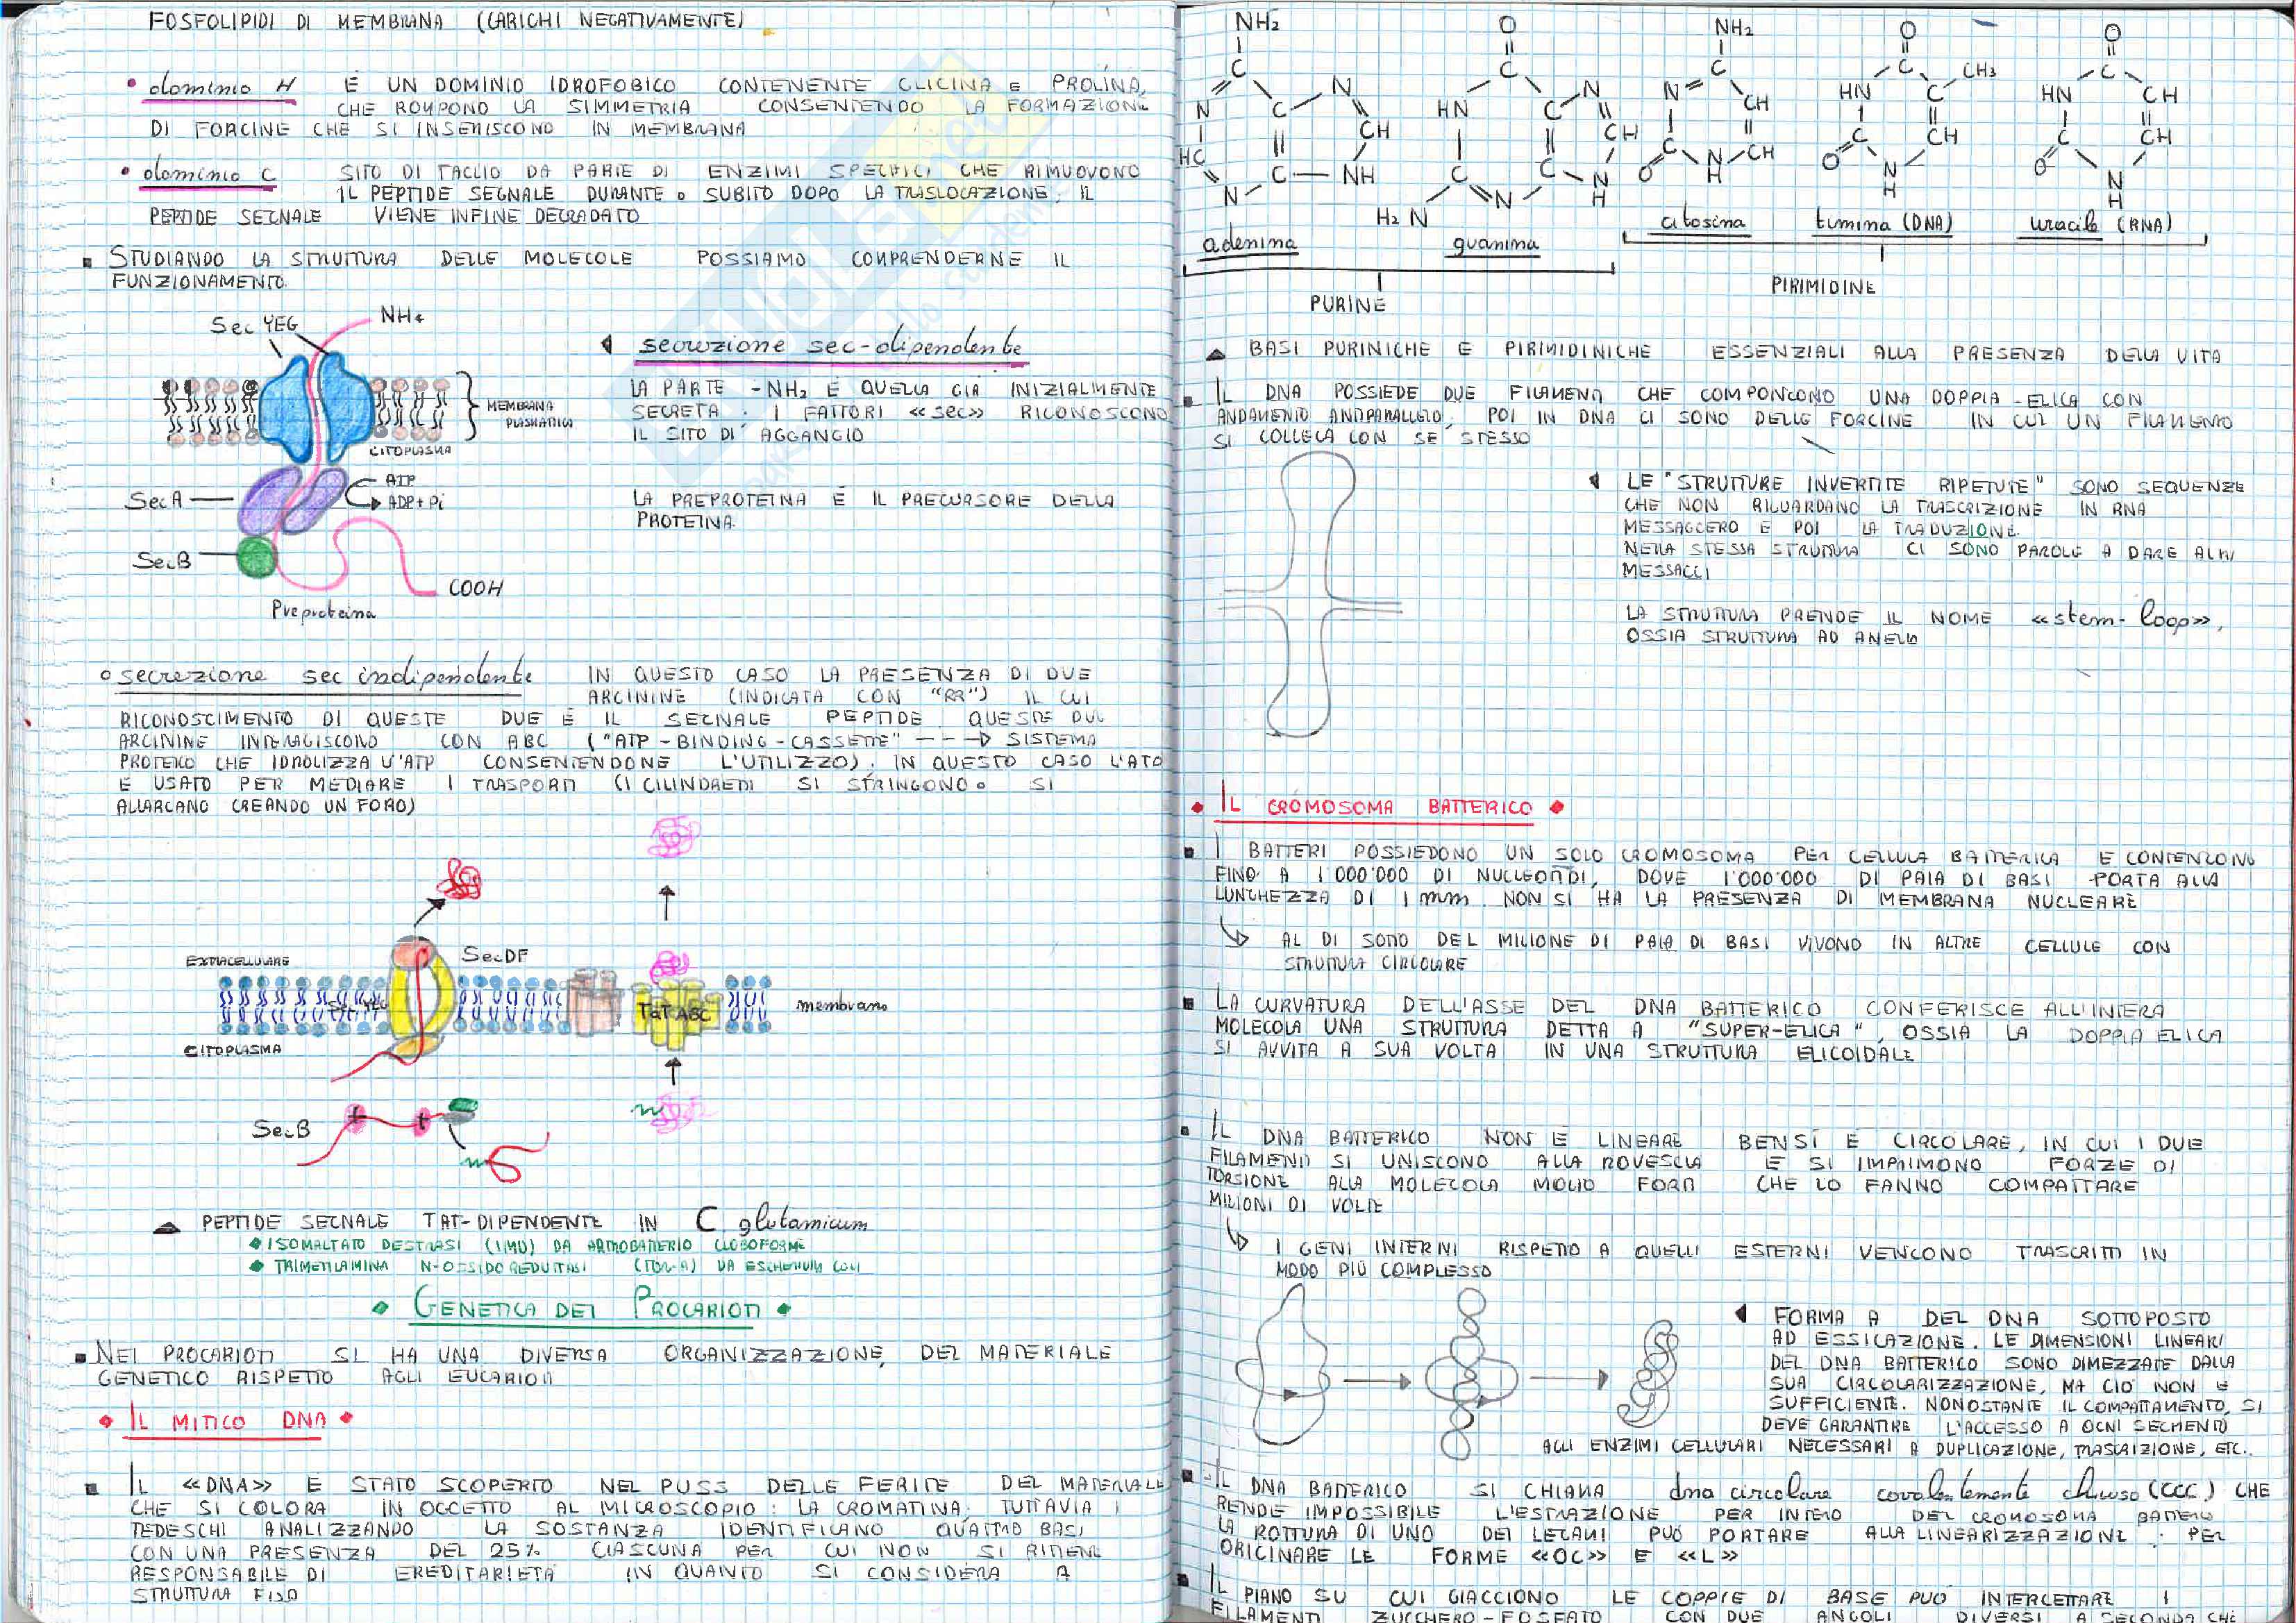 FOSFOLIPIDI DI MEMBRANA (CARICHI NEGATIVAMENTE)
• dominio H È UN DOMINIO IDROFOBICO CONTENENTE GLICINA E PROLINA,
CHE ROMPONO LA SIMMETRIA CONSENTENDO LA FORMAZIONE
DI FORCINE CHE SI INSERISCONO IN MEMBRANA
• dominio C SITO DI TAGLIO DA PARTE DI ENZIMI SPECIFICI CHE RIMUOVONO
IL PEPTIDE SEGNALE DURANTE O SUBITO DOPO LA TRASLOCAZIONE; IL
PEPTIDE SEGNALE VIENE INFINE DEGRADATO
STUDIANDO LA STRUTTURA DELLE MOLECOLE POSSIAMO COMPRENDERNE IL
FUNZIONAMENTO.
Sec YEG
NH4
MEMBRANA
PLASMATICA
CITOPLASMA
SecA
ATP
ADP+Pi
SecB
COOH
Preproteina
secrezione sec-dipendente
LA PARTE -NH2 È QUELLA GIÀ INIZIALMENTE
SECRETA. I FATTORI «SEC» RICONOSCONO
IL SITO DI AGGANCIO
LA PREPROTEINA È IL PRECURSORE DELLA
PROTEINA.
secrezione sec indipendente IN QUESTO CASO LA PRESENZA DI DUE
ARGININE (INDICATA CON "RR") IL CUI
RICONOSCIMENTO DI QUESTE DUE È IL SEGNALE PEPTIDE. QUESTE DUE
ARGININE INTERAGISCONO CON ABC ("ATP-BINDING-CASSETTE" ---▷ SISTEMA
PROTEICO CHE IDROLIZZA L'ATP CONSENTENDONE L'UTILIZZO). IN QUESTO CASO L'ATP
È USATO PER MEDIARE I TRASPORTI (I CILINDRETTI SI STRINGONO O SI
ALLARGANO CREANDO UN FORO)
EXTRACELLULARE
SecDF
TaT ABC
membrana
CITOPLASMA
SecB
PEPTIDE SEGNALE TAT-DIPENDENTE IN C. glutamicum
ISOMALTATO DESTRASI (IMD) DA ARTROBATTERIO GLOBOFORME
TRIMETILAMINA N-OSSIDO REDUTTASI (TOR-A) DA ESCHERICHIA COLI
GENETICA DEI PROCARIOTI
NEI PROCARIOTI SI HA UNA DIVERSA ORGANIZZAZIONE DEL MATERIALE
GENETICO RISPETTO AGLI EUCARIOTI
IL MITICO DNA
IL «DNA» È STATO SCOPERTO NEL PUSS DELLE FERITE DEL MATERIALE
CHE SI COLORA IN OGGETTO AL MICROSCOPIO: LA CROMATINA. TUTTAVIA I
TEDESCHI ANALIZZANDO LA SOSTANZA IDENTIFICANO QUATTRO BASI
CON UNA PRESENZA DEL 25% CIASCUNA PER CUI NON SI RITIENE
RESPONSABILE DI EREDITARIETÀ IN QUANTO SI CONSIDERA A
STRUTTURA FISSA
adenina
guanina
citosina
timina (DNA)
uracile (RNA)
PURINE
PIRIMIDINE
BASI PURINICHE E PIRIMIDINICHE ESSENZIALI ALLA PRESENZA DELLA VITA
IL DNA POSSIEDE DUE FILAMENTI CHE COMPONGONO UNA DOPPIA-ELICA CON
ANDAMENTO ANTIPARALLELO; POI IN DNA CI SONO DELLE FORCINE IN CUI UN FILAMENTO
SI COLLEGA CON SE STESSO
LE "STRUTTURE INVERTITE RIPETUTE" SONO SEQUENZE
CHE NON RIGUARDANO LA TRASCRIZIONE IN RNA
MESSAGGERO E POI LA TRADUZIONE.
NELLA STESSA STRUTTURA CI SONO PAROLE A DARE ALTRI
MESSAGGI
LA STRUTTURA PRENDE IL NOME «stem-loop»,
OSSIA STRUTTURA AD ANELLO
IL CROMOSOMA BATTERICO
I BATTERI POSSIEDONO UN SOLO CROMOSOMA PER CELLULA BATTERICA E CONTENGONO
FINO A 1'000'000 DI NUCLEOTIDI, DOVE 1'000'000 DI PAIA DI BASI PORTA ALLA
LUNGHEZZA DI 1 mm. NON SI HA LA PRESENZA DI MEMBRANA NUCLEARE
AL DI SOTTO DEL MILIONE DI PAIA DI BASI VIVONO IN ALTRE CELLULE CON
STRUTTURA CIRCOLARE
LA CURVATURA DELL'ASSE DEL DNA BATTERICO CONFERISCE ALL'INTERA
MOLECOLA UNA STRUTTURA DETTA A "SUPER-ELICA", OSSIA LA DOPPIA ELICA
SI AVVITA A SUA VOLTA IN UNA STRUTTURA ELICOIDALE
IL DNA BATTERICO NON È LINEARE BENSÌ È CIRCOLARE, IN CUI I DUE
FILAMENTI SI UNISCONO ALLA ROVESCIA E SI IMPRIMONO FORZE DI
TORSIONE ALLA MOLECOLA MOLTO FORTI CHE LO FANNO COMPATTARE
MILIONI DI VOLTE
I GENI INTERNI RISPETTO A QUELLI ESTERNI VENGONO TRASCRITTI IN
MODO PIÙ COMPLESSO
FORMA A DEL DNA SOTTOPOSTO
AD ESSICAZIONE. LE DIMENSIONI LINEARI
DEL DNA BATTERICO SONO DIMEZZATE DALLA
SUA CIRCOLARIZZAZIONE, MA CIÒ NON È
SUFFICIENTE. NONOSTANTE IL COMPATTAMENTO, SI
DEVE GARANTIRE L'ACCESSO A OGNI SEGMENTO
AGLI ENZIMI CELLULARI NECESSARI A DUPLICAZIONE, TRASCRIZIONE, ETC.
IL DNA BATTERICO SI CHIAMA dna circolare covalentemente chiuso (CCC) CHE
RENDE IMPOSSIBILE L'ESTRAZIONE PER INTERO DEL CROMOSOMA BATTERICO
LA ROTTURA DI UNO DEI LEGAMI PUÒ PORTARE ALLA LINEARIZZAZIONE PER
ORIGINARE LE FORME «OC» E «L»
IL PIANO SU CUI GIACCIONO LE COPPIE DI BASE PUÒ INTERCETTARE I
FILAMENTI ZUCCHERO-FOSFATO CON DUE ANGOLI DIVERSI A SECONDA CHE